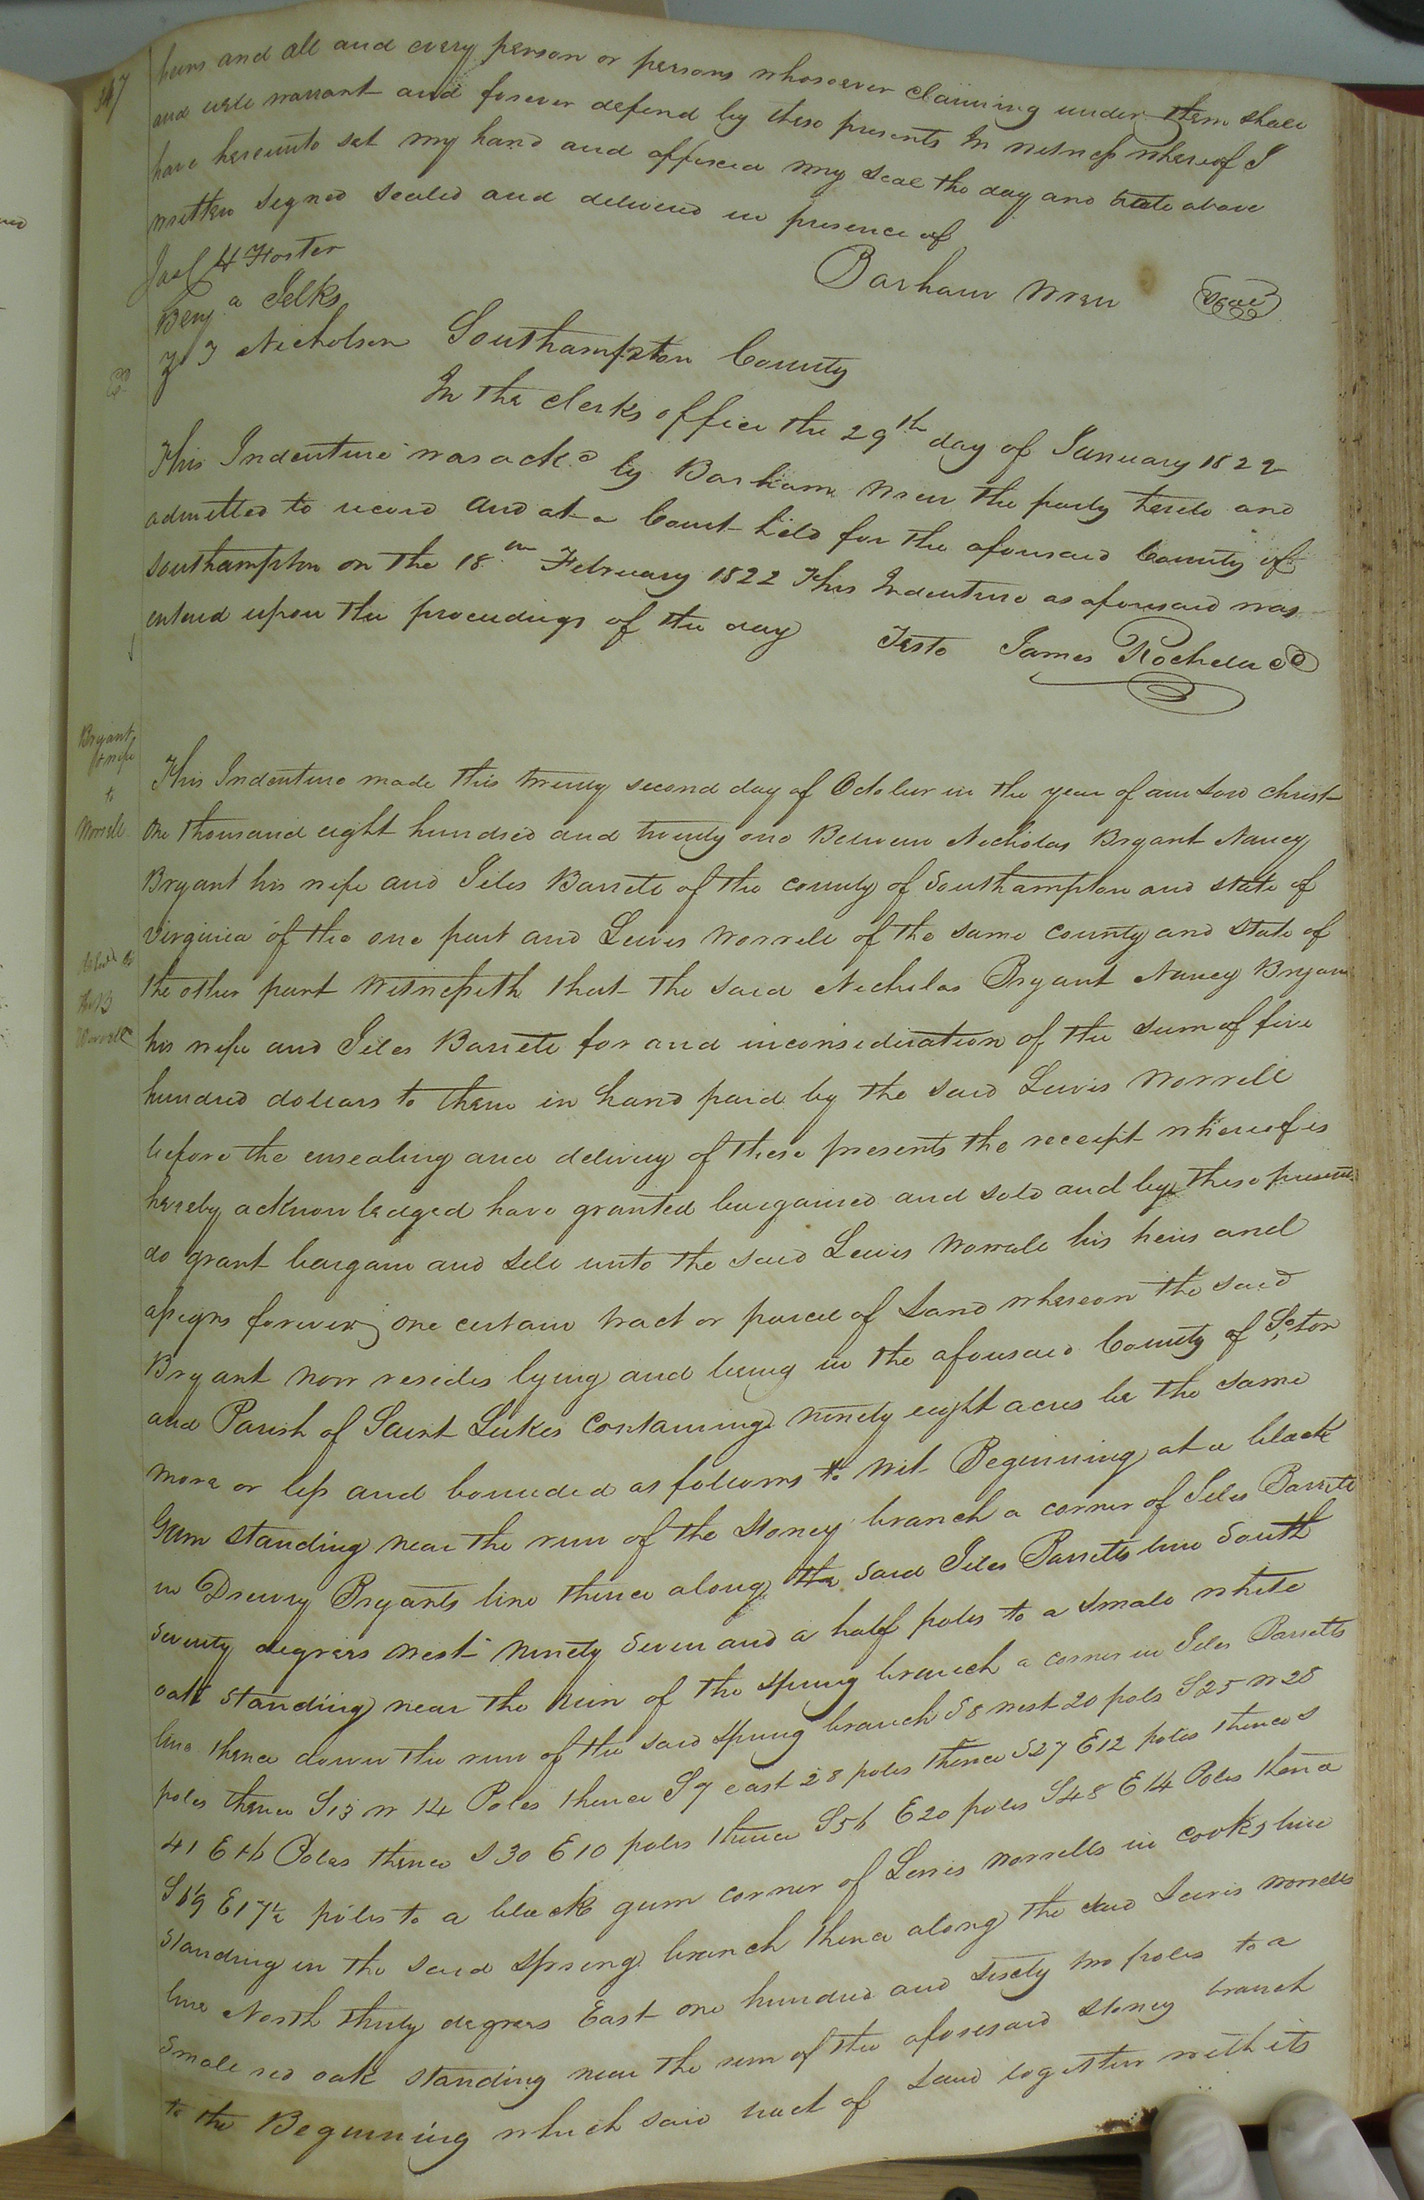 347
heirs and all and every person or persons whosoever claiming under them shall
and will warrant and forever defend by these presents In witness whereof I
have hereunto set my hand and affixed my seal the day and date above
written signed sealed and delivered in presence of
Barham Wren seal
H Foster
Benja Jelks
Nicholson
Southampton County
In the clerks office the 29th day of January 1822
This Indenture was ackd by Barham Wren the party hereto and
admitted to record and at a Court held for the aforesaid County of
Southampton on the 18th February 1822 This Indenture as aforesaid was
enterd upon the proceedings of the day
Teste James Rochelle
Bryant
& wife
to
Worrell
This Indenture made this twenty second day of October in the year of our Lord christ
One thousand eight hundred and twenty one Between Nicholas Bryant Nancy
Bryant his wife and Giles Barrett of the county of Southampton and state of
Virginia of the one part and Lewis Worrell of the same county and State of
the other part Witnesseth that the said Nicholas Bryant Nancy Bryant
his wife and Giles Barrett for and in consideration of the sum of five
hundred dollars to them in hand paid by the said Lewis Worrell
before the ensealing and delivery of these presents the receipt whereof is
hereby acknowledged have granted bargained and sold and by these presents
do grant bargain and sell unto the said Lewis Worrell his heirs and
assigns forever one certain tract or parcel of Land whereon the said
Bryant now resides lying and being in the aforesaid County of So,ton
and Parish of Saint Lukes Containing ninety eight acres be the same
more or less and bounded as follows to wit Beginning at a black
Gum standing near the run of the Stoney branch a corner of Giles Barretts
in Drewry Bryants line thence along the said Giles Barretts line South
Seventy degrees West Ninety Seven and a half poles to a small white
oak standing near the run of the spring branch a corner in Giles Barretts
line thence down the run of the said spring branch S 8 west 20 pols S 25 W 28
poles thence S 13 W 14 Poles thence S 9 east 28 poles thence S 27 E 12 poles thence S
41 E 16 Poles thence S 30 E 10 poles thence S 56 E 20 poles S 48 E 14 Poles thence
S 69 E 17½ poles to a black gum corner of Lewis Worrells in Cooks line
Standing in the said Spring branch thence along the said Lewis Worrells
line North thirty degrees East one hundred and sixty two poles to a
Small red oak standing near the run of the aforesaid stoney branch
to the Beginning which said tract of Land together with its